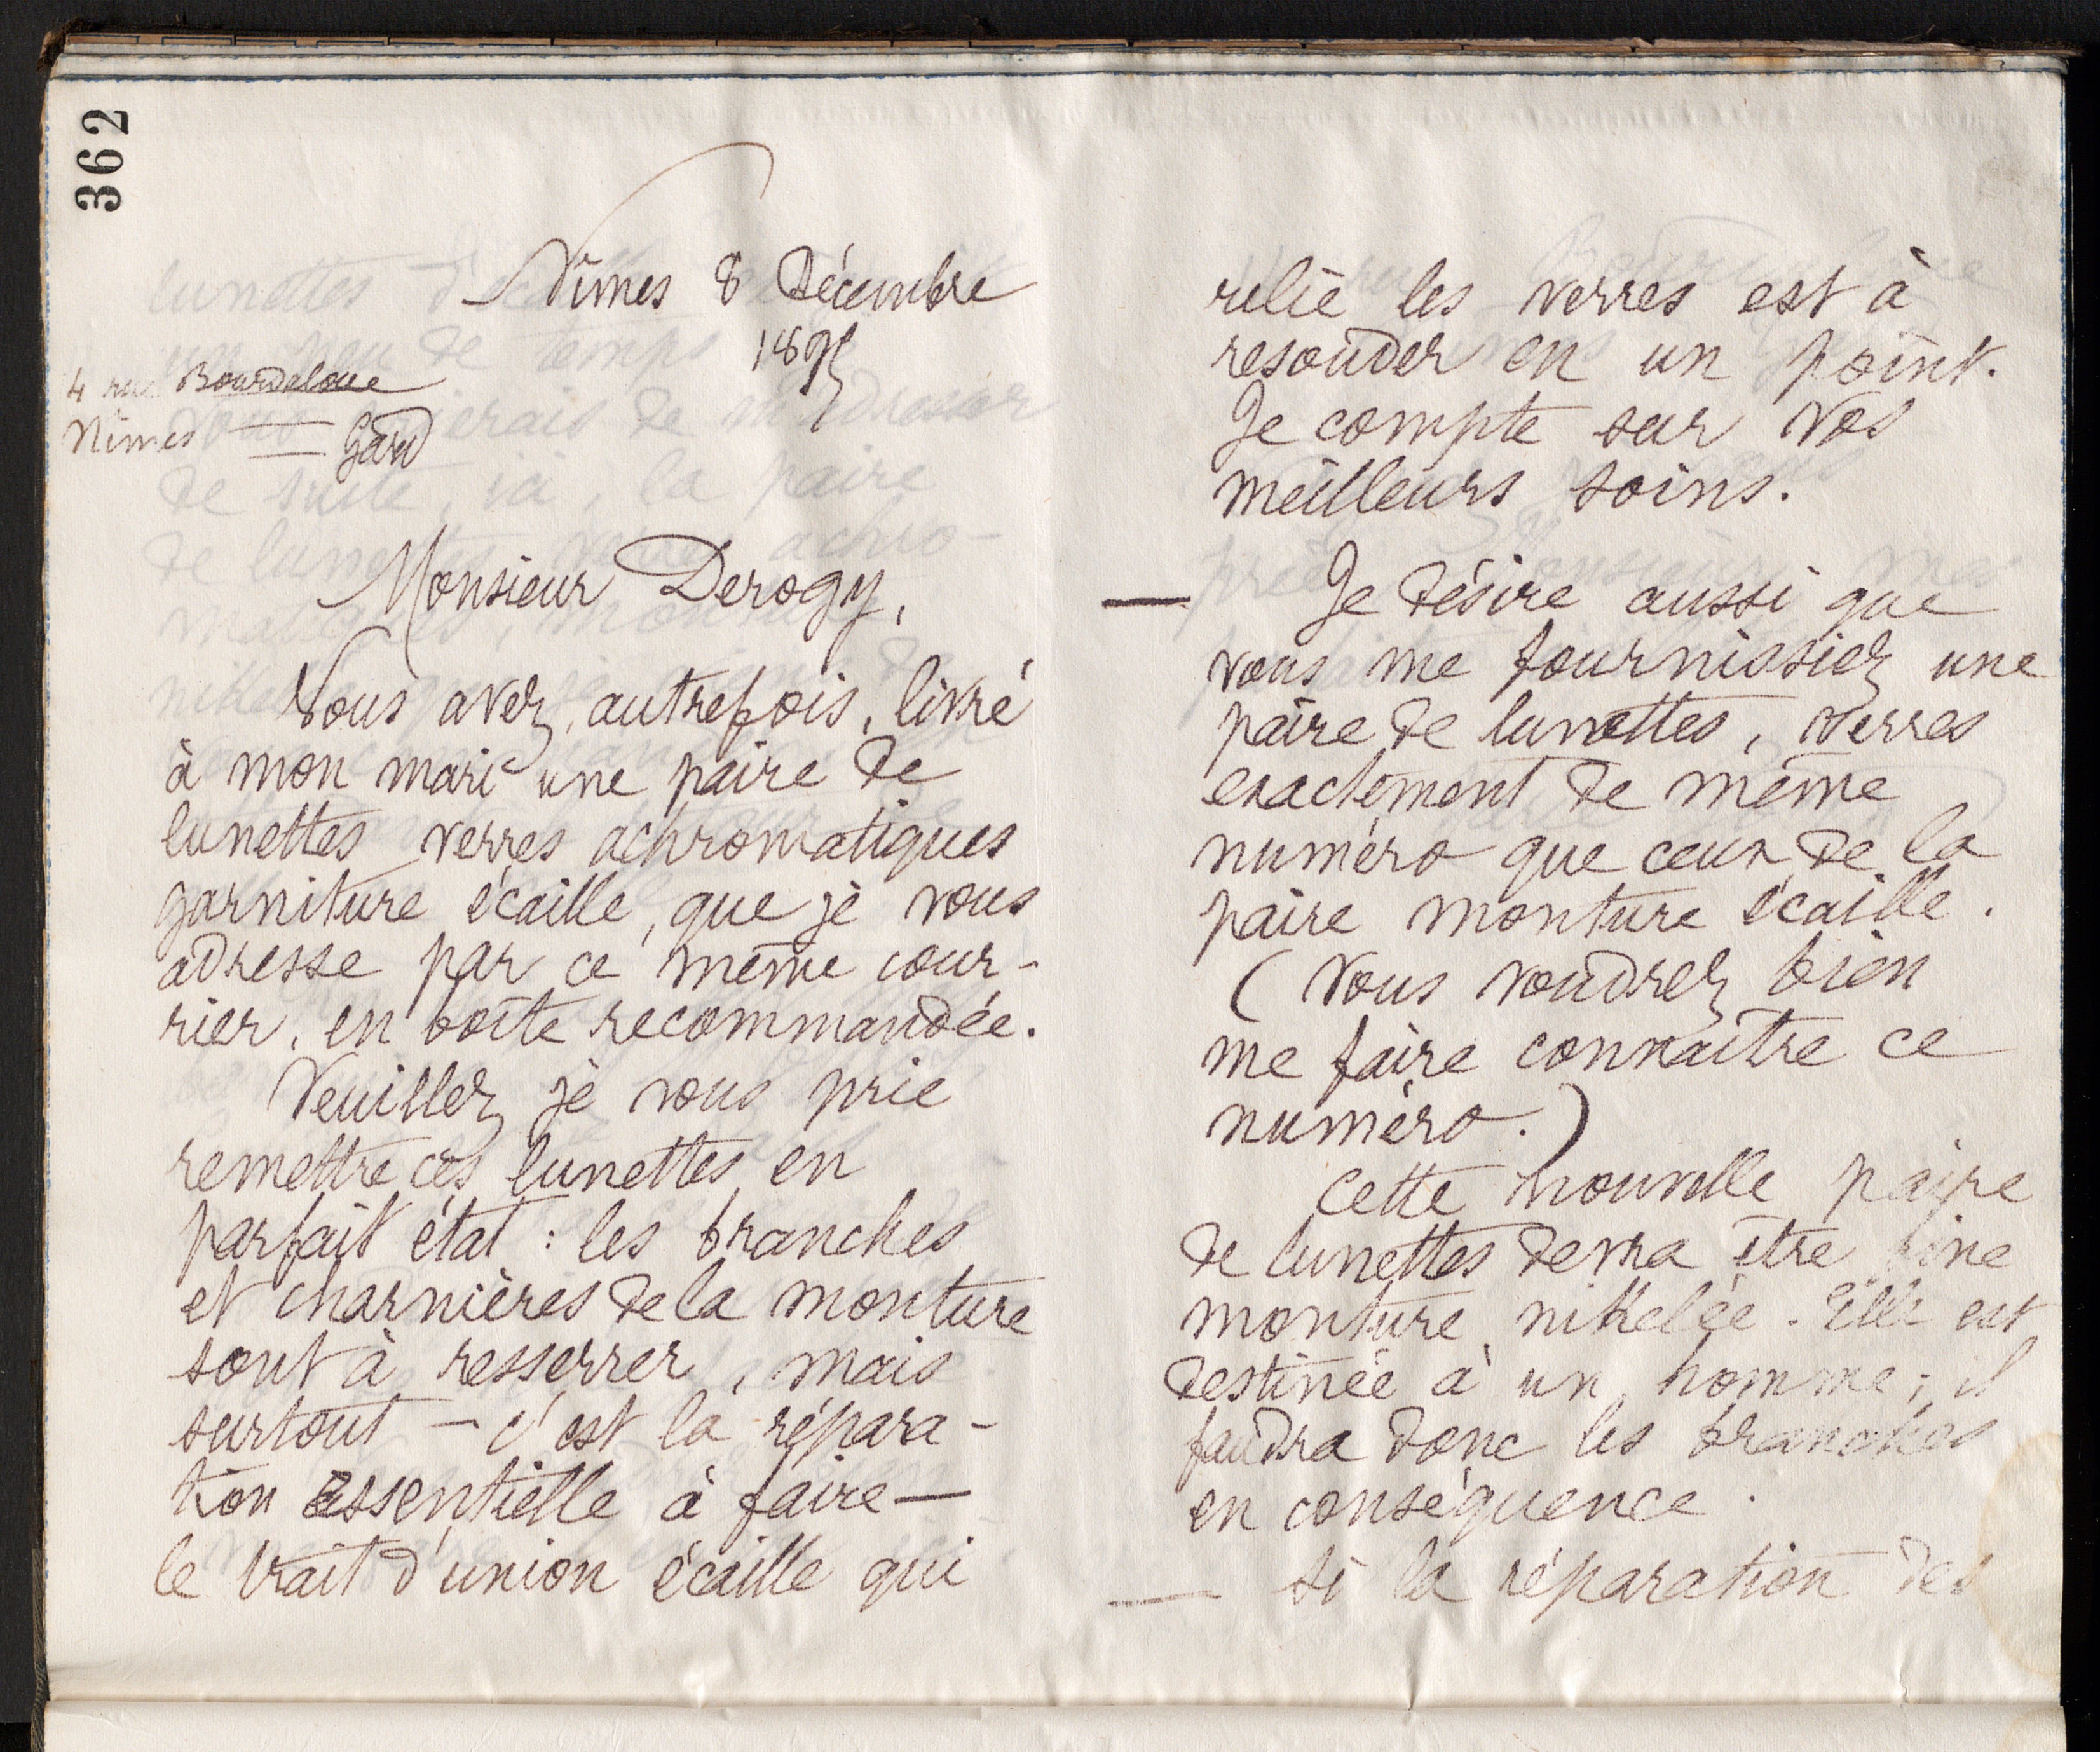 362
Nîmes 8 Décembre
1895
4 rue Bourdaloue
Nîmes — Gard
Monsieur Derogy,
Vous avez, autrefois, livré
à mon mari une paire de
lunettes verres achromatiques
garniture écaille, que je vous
adresse par ce même cour-
rier, en boîte recommandée.
Veuillez je vous prie
remettre ces lunettes en
parfait état : les branches
et charnières de la monture
sont à resserrer, mais
surtout — c'est la répara-
tion essentielle à faire —
le trait d'union écaille qui
relie les verres est à
resouder en un point.
Je compte sur vos
meilleurs soins.
— Je désire aussi que
vous me fournissiez une
paire de lunettes, verres
exactement de même
numéro que ceux de la
paire monture écaille.
(Vous voudrez bien
me faire connaître ce
numéro.)
Cette nouvelle paire
de lunettes devra être fine
monture nikelée. Elle est
destinée à un homme ; il
faudra donc les branches
en conséquence.
— Si la réparation des